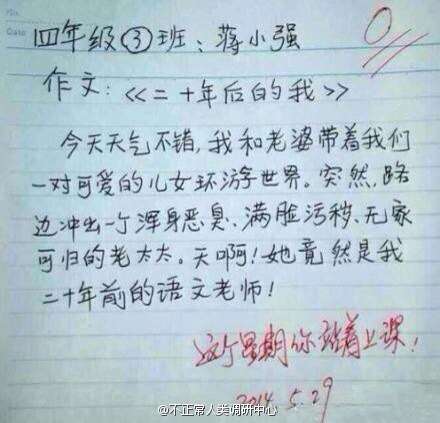 四年级③班：蒋小强
0
作文：《二十年后的我》
今天天气不错，我和老婆带着我们
一对可爱的儿女环游世界。突然，路
边冲出一个浑身恶臭、满脸污秽、无家
可归的老太太。天啊！她竟然是我
二十年前的语文老师！
这个星期你站着上课！
2014.5.29
@不正常人类调研中心